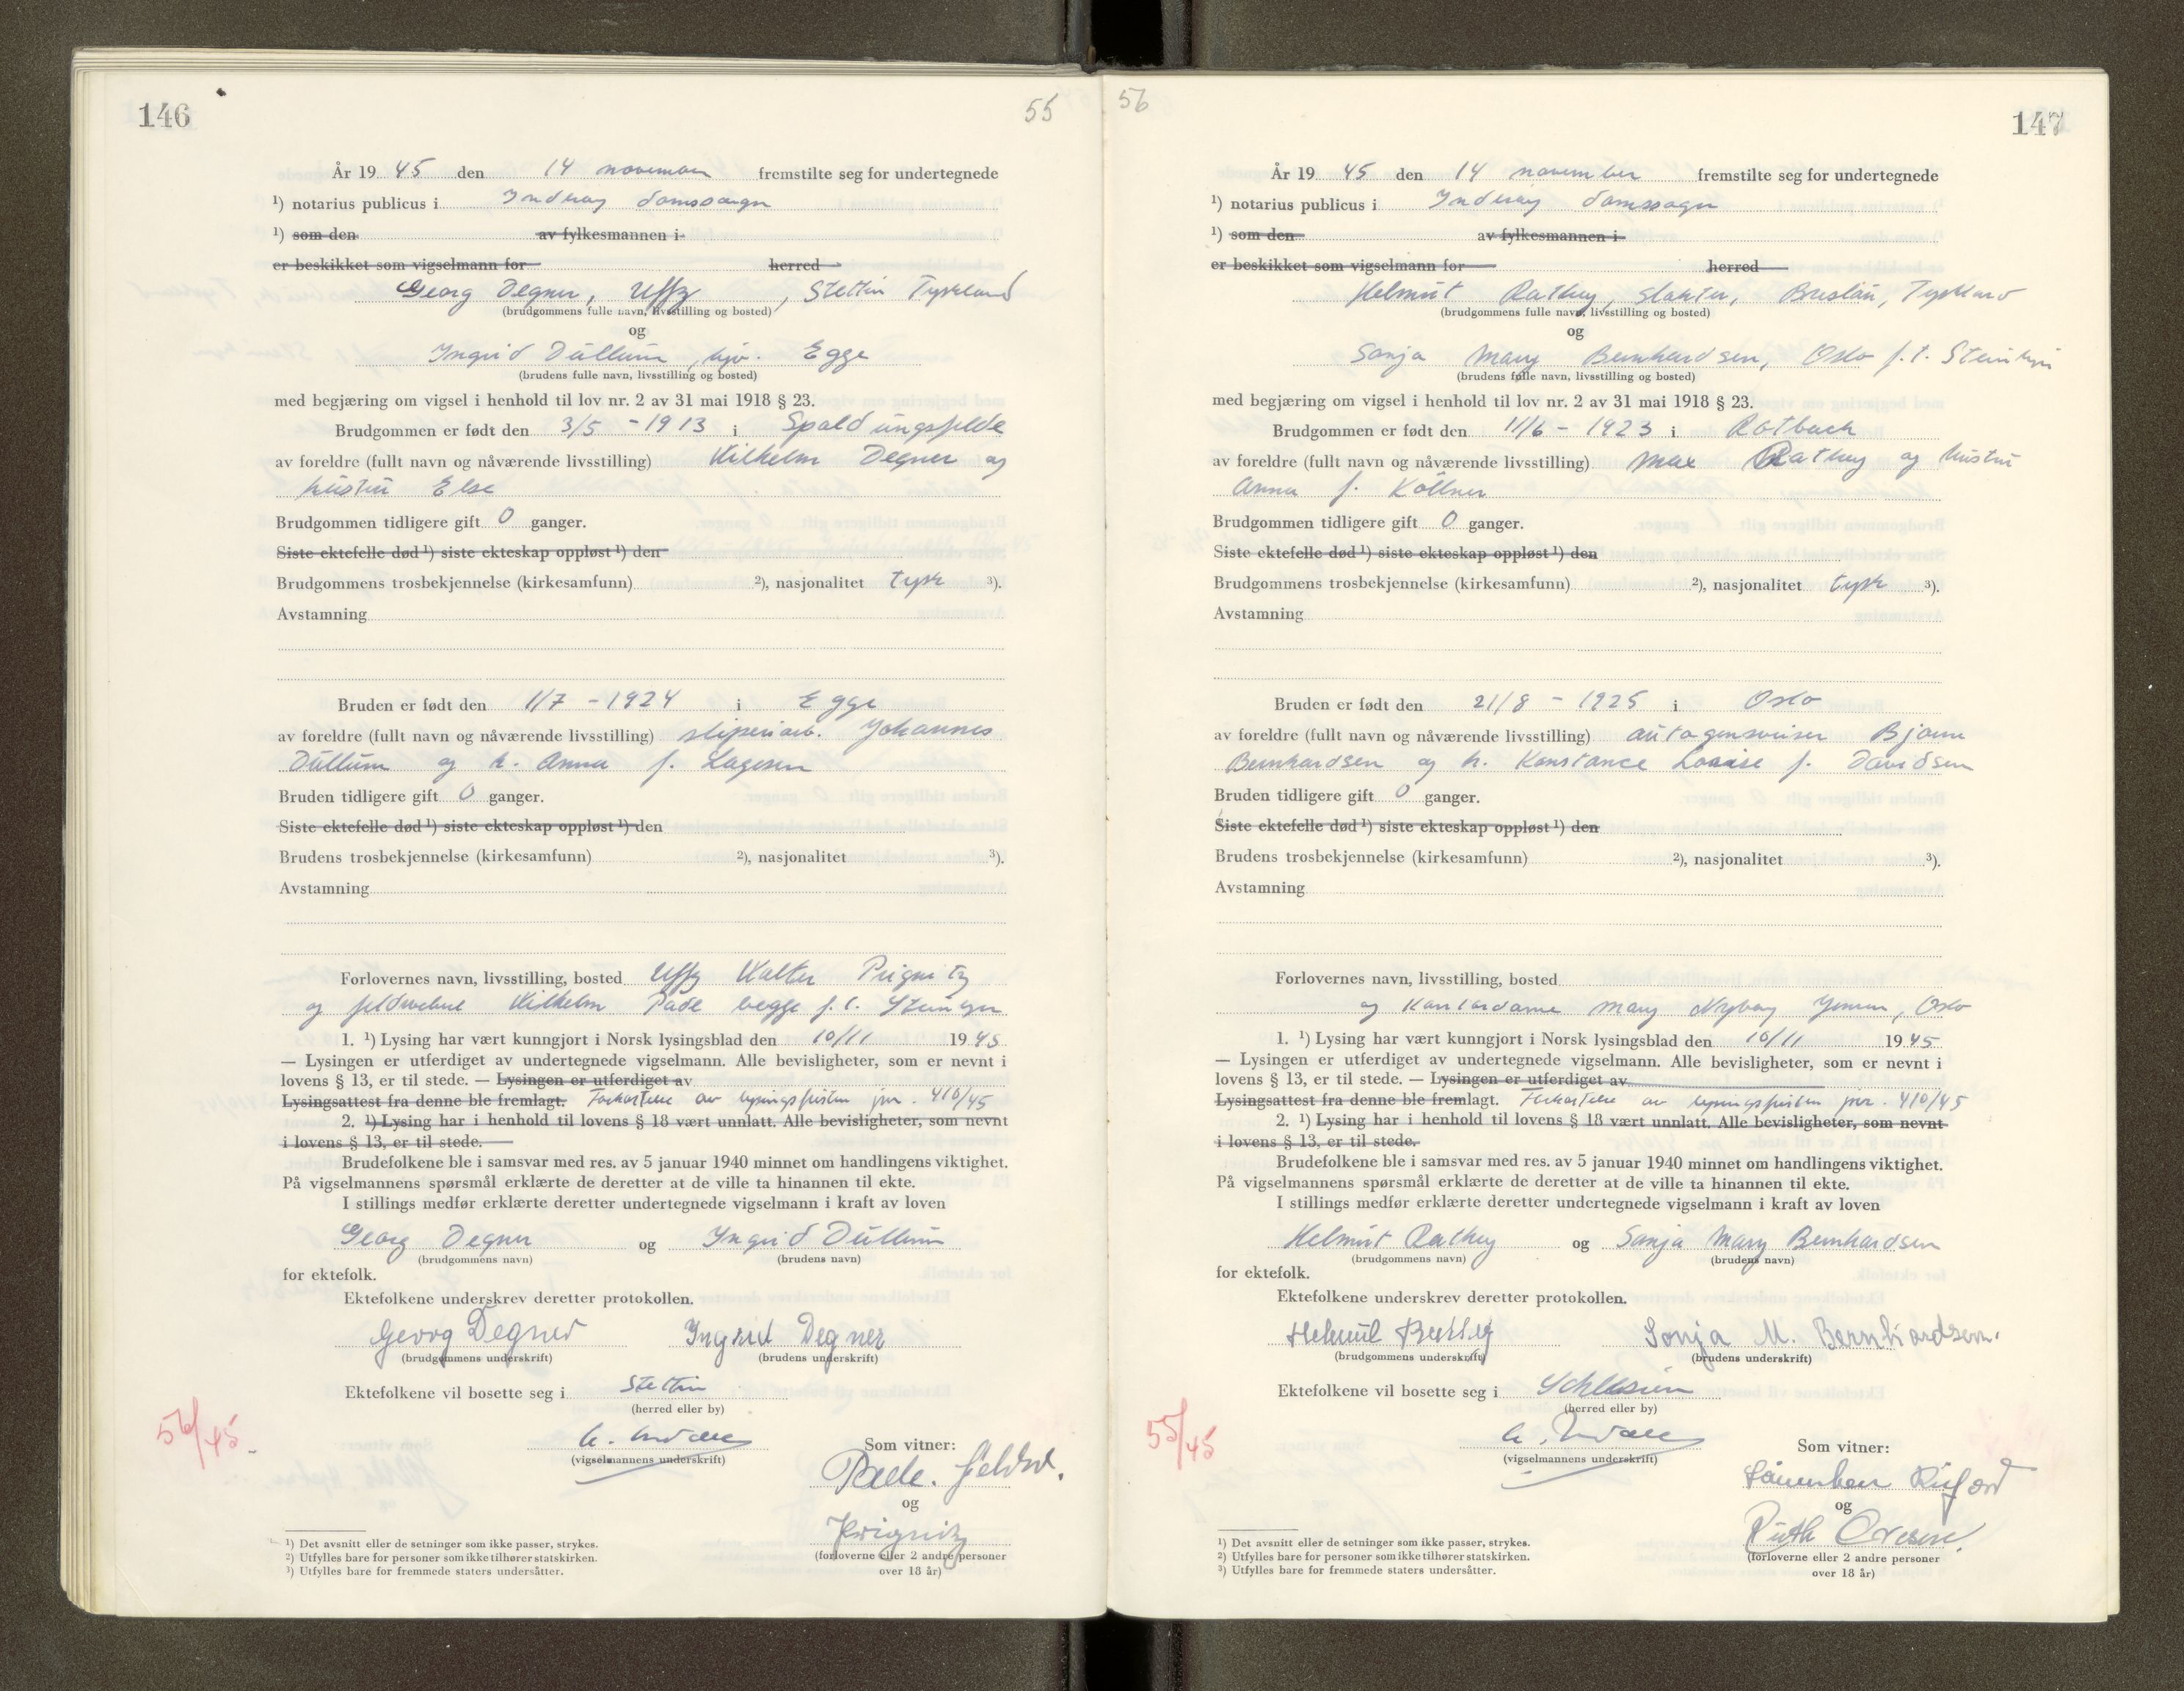 146
55
År 19 45 den 14 november fremstilte seg for undertegnede
¹) notarius publicus i Inderøy domssogn
¹) som den av fylkesmannen i
er beskikket som vigselmann for herred
Georg Degner, Uffz, Stettin Tyskland
(brudgommens fulle navn, livsstilling og bosted)
og
Ingrid Dullum, hjv. Egge
(brudens fulle navn, livsstilling og bosted)
med begjæring om vigsel i henhold til lov nr. 2 av 31 mai 1918 § 23.
Brudgommen er født den 3/5 - 1913 i
av foreldre (fullt navn og nåværende livsstilling) Wilhelm Degner og
hustru Else
Brudgommen tidligere gift 0 ganger.
Siste ektefelle død ¹) siste ekteskap oppløst ¹) den
Brudgommens trosbekjennelse (kirkesamfunn) ²), nasjonalitet tysk ³).
Avstamning
Bruden er født den 1/7 - 1924 i Egge
av foreldre (fullt navn og nåværende livsstilling) sliperiarb. Johannes
Dullum og h. Anna f. Lagesen
Bruden tidligere gift 0 ganger.
Siste ektefelle død ¹) siste ekteskap oppløst ¹) den
Brudens trosbekjennelse (kirkesamfunn) ²), nasjonalitet ³).
Avstamning
Forlovernes navn, livsstilling, bosted Uffz Walter Prignitz
og feldwebel Wilhelm Pade begge f.t. Steinkjer
1. ¹) Lysing har vært kunngjort i Norsk lysingsblad den 10/11 19 45
— Lysingen er utferdiget av undertegnede vigselmann. Alle bevisligheter, som er nevnt i
lovens § 13, er til stede. — Lysingen er utferdiget av
Lysingsattest fra denne ble fremlagt. Forkortelse av lysingsfristen jnr. 410/45
2. ¹) Lysing har i henhold til lovens § 18 vært unnlatt. Alle bevisligheter, som nevnt
i lovens § 13, er til stede.
Brudefolkene ble i samsvar med res. av 5 januar 1940 minnet om handlingens viktighet.
På vigselmannens spørsmål erklærte de deretter at de ville ta hinannen til ekte.
I stillings medfør erklærte deretter undertegnede vigselmann i kraft av loven
Georg Degner og Ingrid Dullum
(brudgommens navn) (brudens navn)
for ektefolk.
Ektefolkene underskrev deretter protokollen.
Georg Degner Ingrid Degner
(brudgommens underskrift) (brudens underskrift)
Ektefolkene vil bosette seg i Stettin
(herred eller by)
56/45
Som vitner:
(vigselmannens underskrift)
Pade. Feldw.
og
Prignitz
(forloverne eller 2 andre personer
over 18 år)
¹) Det avsnitt eller de setninger som ikke passer, strykes.
²) Utfylles bare for personer som ikke tilhører statskirken.
³) Utfylles bare for fremmede staters undersåtter.
56
147
År 19 45 den 14 november fremstilte seg for undertegnede
¹) notarius publicus i Inderøy domssogn
¹) som den av fylkesmannen i
er beskikket som vigselmann for herred
Helmut Rathey, slakter, Breslau, Tyskland
(brudgommens fulle navn, livsstilling og bosted)
og
Sonja Mary Bernhardsen, Oslo f.t. Steinkjer
(brudens fulle navn, livsstilling og bosted)
med begjæring om vigsel i henhold til lov nr. 2 av 31 mai 1918 § 23.
Brudgommen er født den 11/6 - 1923 i Rotbach
av foreldre (fullt navn og nåværende livsstilling) Max Rathey og hustru
Anna f. Köllner
Brudgommen tidligere gift 0 ganger.
Siste ektefelle død ¹) siste ekteskap oppløst ¹) den
Brudgommens trosbekjennelse (kirkesamfunn) ²), nasjonalitet tysk ³).
Avstamning
Bruden er født den 21/8 - 1925 i Oslo
av foreldre (fullt navn og nåværende livsstilling) autogensveiser Bjarne
Bernhardsen og h. Konstance Louise f. Davidsen
Bruden tidligere gift 0 ganger.
Siste ektefelle død ¹) siste ekteskap oppløst ¹) den
Brudens trosbekjennelse (kirkesamfunn) ²), nasjonalitet ³).
Avstamning
Forlovernes navn, livsstilling, bosted
og kontordame Mary Nyberg Jensen, Oslo
1. ¹) Lysing har vært kunngjort i Norsk lysingsblad den 10/11 19 45
— Lysingen er utferdiget av undertegnede vigselmann. Alle bevisligheter, som er nevnt i
lovens § 13, er til stede. — Lysingen er utferdiget av
Lysingsattest fra denne ble fremlagt. Forkortelse av lysingsfristen jnr. 410/45
2. ¹) Lysing har i henhold til lovens § 18 vært unnlatt. Alle bevisligheter, som nevnt
i lovens § 13, er til stede.
Brudefolkene ble i samsvar med res. av 5 januar 1940 minnet om handlingens viktighet.
På vigselmannens spørsmål erklærte de deretter at de ville ta hinannen til ekte.
I stillings medfør erklærte deretter undertegnede vigselmann i kraft av loven
Helmut Rathey og Sonja Mary Bernhardsen
(brudgommens navn) (brudens navn)
for ektefolk.
Ektefolkene underskrev deretter protokollen.
Helmut Rathey Sonja M. Bernhardsen.
(brudgommens underskrift) (brudens underskrift)
Ektefolkene vil bosette seg i Schlesien
(herred eller by)
55/45
Som vitner:
(vigselmannens underskrift)
og
Ruth
(forloverne eller 2 andre personer
over 18 år)
¹) Det avsnitt eller de setninger som ikke passer, strykes.
²) Utfylles bare for personer som ikke tilhører statskirken.
³) Utfylles bare for fremmede staters undersåtter.